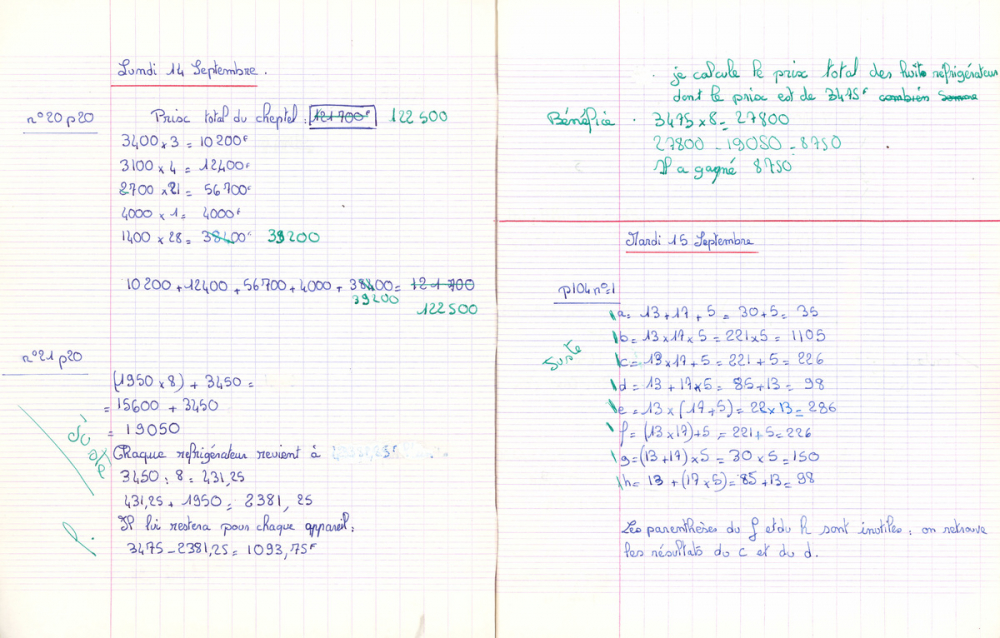 Lundi 14 Septembre.
n°20 p20
Prix total du cheptel : 121 700F 122 500
3400 x 3 = 10 200F
3100 x 4 = 12 400F
2700 x 21 = 56 700F
4000 x 1 = 4000F
1400 x 28 = 38400F 39200
10 200 + 12400 + 56700 + 4000 + 38400 = 121 700
39200
122500
n°21 p20
(1950 x 8) + 3450 =
= 15600 + 3450
= 19050
Chaque réfrigérateur revient à
3450 : 8 = 431,25
431,25 + 1950 = 2381,25
Il lui restera pour chaque appareil :
3475 - 2381,25 = 1093,75F
je calcule le prix total des huits refrigérateur
dont le prix est de 3475F combien
Bénéfice . 3475 x 8 = 27800
27800 - 19050 = 8750
Il a gagné 8750
Mardi 15 Septembre
p104 n°1
a = 13 + 17 + 5 = 30 + 5 = 35
b = 13 x 17 x 5 = 221 x 5 = 1105
c = 13 x 17 + 5 = 221 + 5 = 226
d = 13 + 17 x 5 = 85 + 13 = 98
e = 13 x (17 + 5) = 22 x 13 = 286
f = (13 x 17) + 5 = 221 + 5 = 226
g = (13 + 17) x 5 = 30 x 5 = 150
h = 13 + (17 x 5) = 85 + 13 = 98
Les parenthèses du f et du h sont inutiles : on retrouve
les résultats du c et du d.